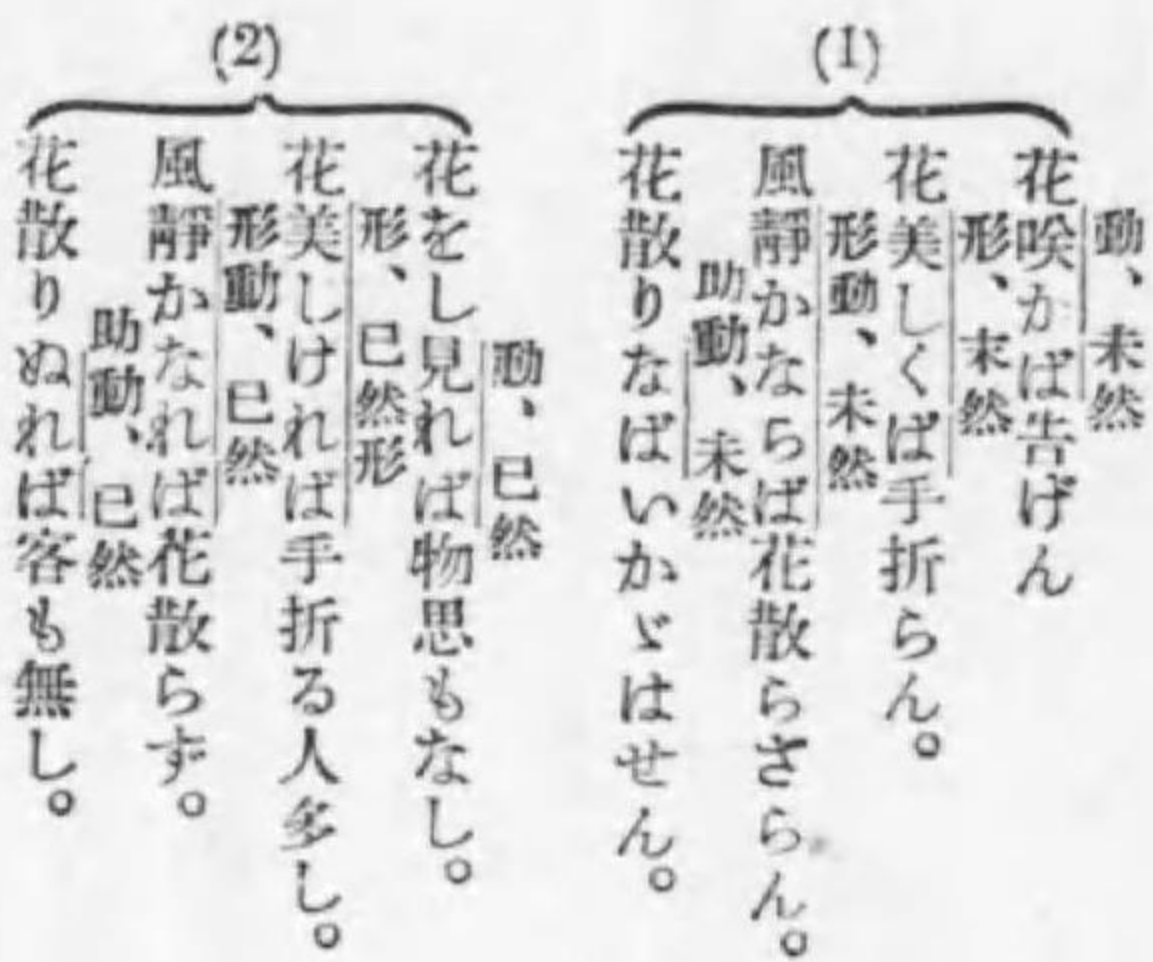 (1)
動、未然
花咲かば告げん
形、末然
花美しくば手折らん。
形動、未然
風靜かならば花散らさらん。
助動、未然
花散りなばいかゞはせん。
(2)
動、已然
花をし見れば物思もなし。
形、已然形
花美しければ手折る人多し。
形動、已然
風靜かなれば花散らず。
助動、已然
花散りぬれば客も無し。